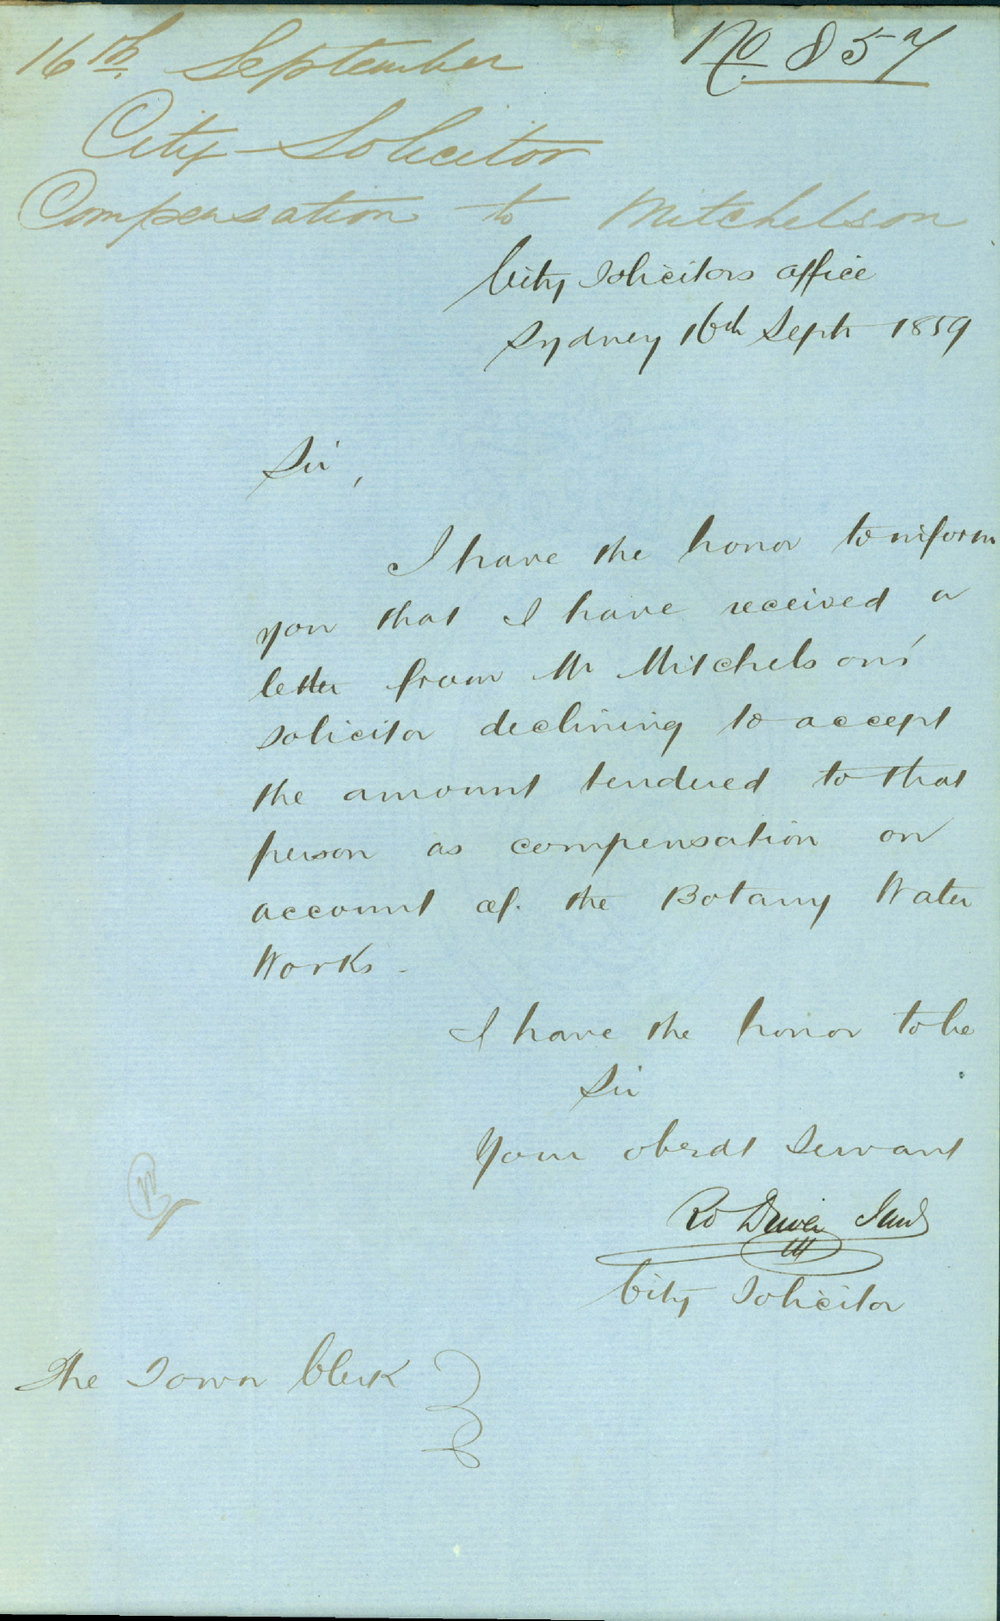 16th September
No 857
City Solicitor
Compensation to Mitchelson
City Solicitors Office
Sydney 16th Sept 1859
Sir,
I have the honor to inform
you that I have received a
letter from Mr Mitchelson's
solicitor declining to accept
the amount tendered to that
person as compensation on
account of the Botany Water
Works.
I have the honor to be
Sir
Your obedt Servant
Ro Driver Junr
City Solicitor
The Town Clerk